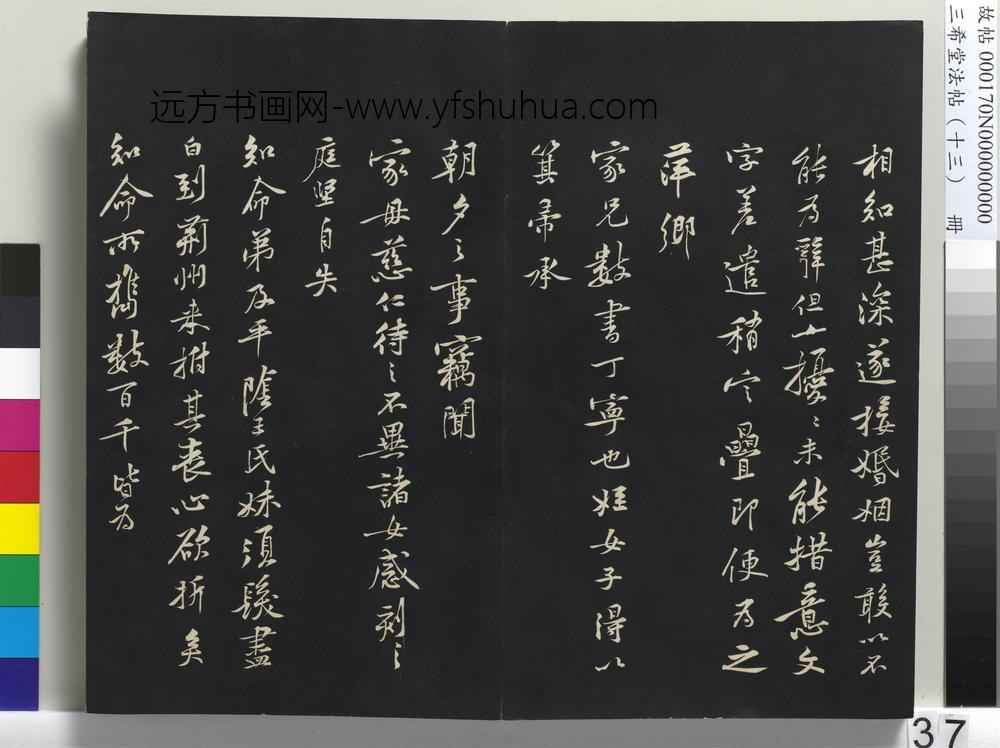 相知甚深遂接婚姻豈敢以不
能為辭但小擾擾未能措意文
字差遣稍定疊即便為之
萍鄉
家兄數書丁寧也姪女子得以
箕帚承
朝夕之事竊聞
家母慈仁待之不異諸女感刻之
庭堅自失
知命弟及平陰王氏妹須髮盡
白到荊州來拊其喪心欲折矣
知命所攜數百千皆為
远方书画网-www.yfshuhua.com
故帖 000170N000000000
三希堂法帖（十三） 冊
37